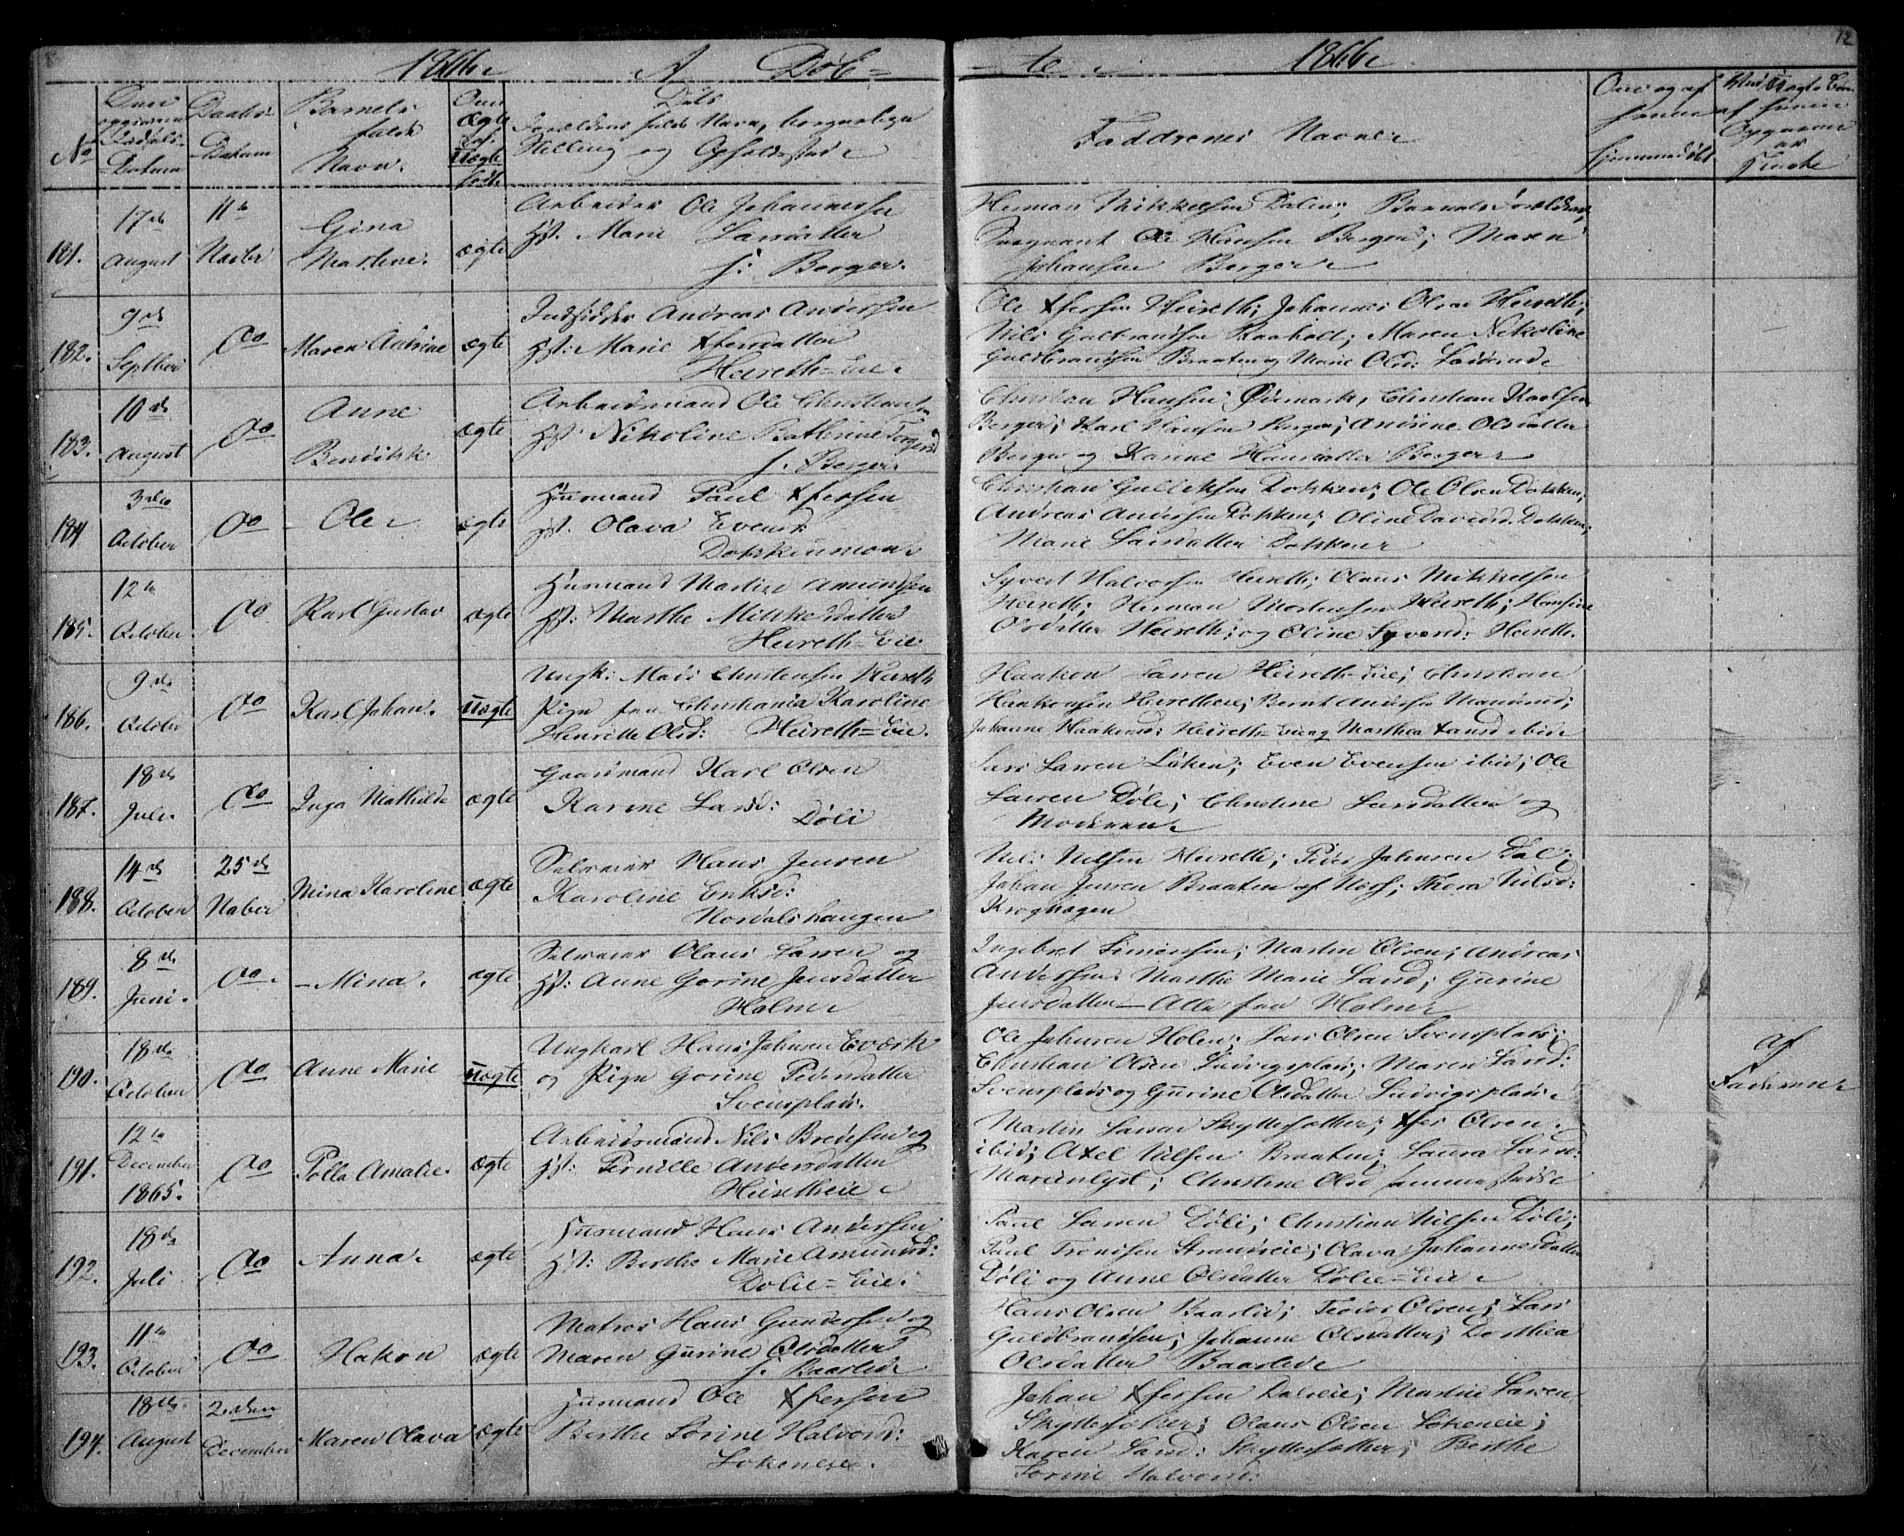 12
1866. A Døb-
-te. 1866.
No
Daabs-
Datum
Barnets
fulde
Navn.
Om
ægte
uægte
født.
Forældrens fulde Navn, borgerlige
Stilling og Opholdssted.
Faddrenes Navne.
181.
17de
August
11te
Novber
Gina
Martine.
ægte
Arbeider Ole Johannessen
Hst. Marie Larsdatter
f: Berger.
Herman Mikkelsen Dalen; Barnets Forældre,
Ole Hansen Berger; Maren
Johansen Berger.
182.
9de
Septber
do
Maren Andrine
ægte
Indsidder Andreas Andersen
Hst: Marie Xfersdatter
Heireth=Eie.
Ole Xfersen Heireth; Johannes Olsen Heireth;
Nils Gulbrandsen Raaholt; Maren Nikoline
Guldbrandsen Braaten og Marie Olsd:
183.
10de
August
do
Anne
Bendikke
ægte
Arbeidsmand Ole Christiansen
Hst: Nikoline Kathrine
f. Berger.
Christian Hansen Christian Karlsen
Berger; Karl Hansen Berger; Andrine Olsdatter
Berger og Karine Hansdatter Berger.
184.
3die
October
do
Ole.
ægte
Huusmand Paul Xfersen
Hst. Olava Evensd:
Dokkenmoen.
Christian Gulliksen Dokken; Ole Olsen Dokken;
Andreas Andersen Dokken; Oline Davidsd. Dokken;
Marie Larsdatter Dokken.
185.
12te
October
do
Karl Gustav
ægte
Huusmand Martin Amundsen
Hst: Marthe Mikkelsdatter
Heireth=Eie
Syvert Halvorsen Heireth; Olaus Mikkelsen
Heireth; Herman Mortensen Heireth; Hansine
Olsdatter Heireth; og Oline Syversd: Heireth.
186.
9de
October
do
Karl Johan.
uægte
Ungk: Mads Christensen Heireth
Pige fra Christiania Karoline
Henriette Olsd: Heireth=Eie.
Haaken Larsen Heireth=Eie; Christian
Haakensen Heiretheie; Bernt Andersen
Johanne Haakensd: Heireth=Eie og Marthea Larsd ibid.
187.
18de
Juli.
do
Inga Mathilde
ægte
Gaardmand Karl Olsen
Karine Larsd:
Døli
Lars Larsen Løken; Even Evensen ibid; Ole
Larsen Døli; Christine Larsdatter og
Moderen.
188.
14de
October
25de
Nober
Mina Karoline
ægte
Selveier Hans Jensen
Karoline Eriksd:
Nordalshaugen
Nils Nilsen Heireth; Peder Johnsen Dal;
Johan Jensen Braaten af Næs; Thora Nilsd:
Kroghagen
189.
8de
Juni.
do.
-Mina.
ægte
Selveier Olaus Larsen og
Hst: Anne Gorine Jensdatter
Holm.
Ingebret Simensen; Martin Olsen; Andreas
Andersen; Marthe Marie Larsd; Gurine
Jensdatter - Alle fra Holm.
190.
18de
October
do
Anne Marie
uægte
Ungkarl Hans Johnsen Eværk
og Pige Gorine Pedersdatter
Svensplads.
Ole Johnsen Holen; Lars Olsen Svensplads;
Christian Olsen Ludvigsplads; Maren Larsd:
Svensplads og Gurine Olsdatter Ludvigsplads.
Af
Faderen.
191.
12te
December
1865.
do
Polla Amalie.
ægte
Arbeidsmand Nils Bredesen og
Hst: Pernille Andersdatter
Heiretheie.
Martin Larsen Skyttesætter; Xfer Olsen
ibid; Axel Nilsen Braaten; Laura Larsd:
Marienlyst; Christine Olsd sammesteds.
192.
18de
Juli
do
Anna.
ægte
Huusmand Hans Andersen
Hst: Berthe Marie Amundsd:
Dølie=Eie.
Larsen Døli; Christian Nilsen Døli;
Paul Trondsen Strandseie; Olava Johannesdatter
Døli og Anne Olsdatter Dølie=Eie.
193.
11te
October
do
Hakon
ægte
Matros Hans Gundersen og
Maren Gurine Olsdatter
f. Baaslid.
Hans Olsen Baaslid; Olsen; Lars
Guldbrandsen; Johanne Olsdatter; Dorthea
Olsdatter Baaslid.
194.
18de
August
2den
December
Maren Olava
ægte
Huusmand Ole Xfersen
Berthe Sorine Halvorsd:
Løkeneie.
Johan Xfersen Daleie; Martin Larsen
Skyttesætter; Olaus Olsen Løkeneie;
Karen Larsd: Skyttesætter; Berthe
Sorine Halvorsd: